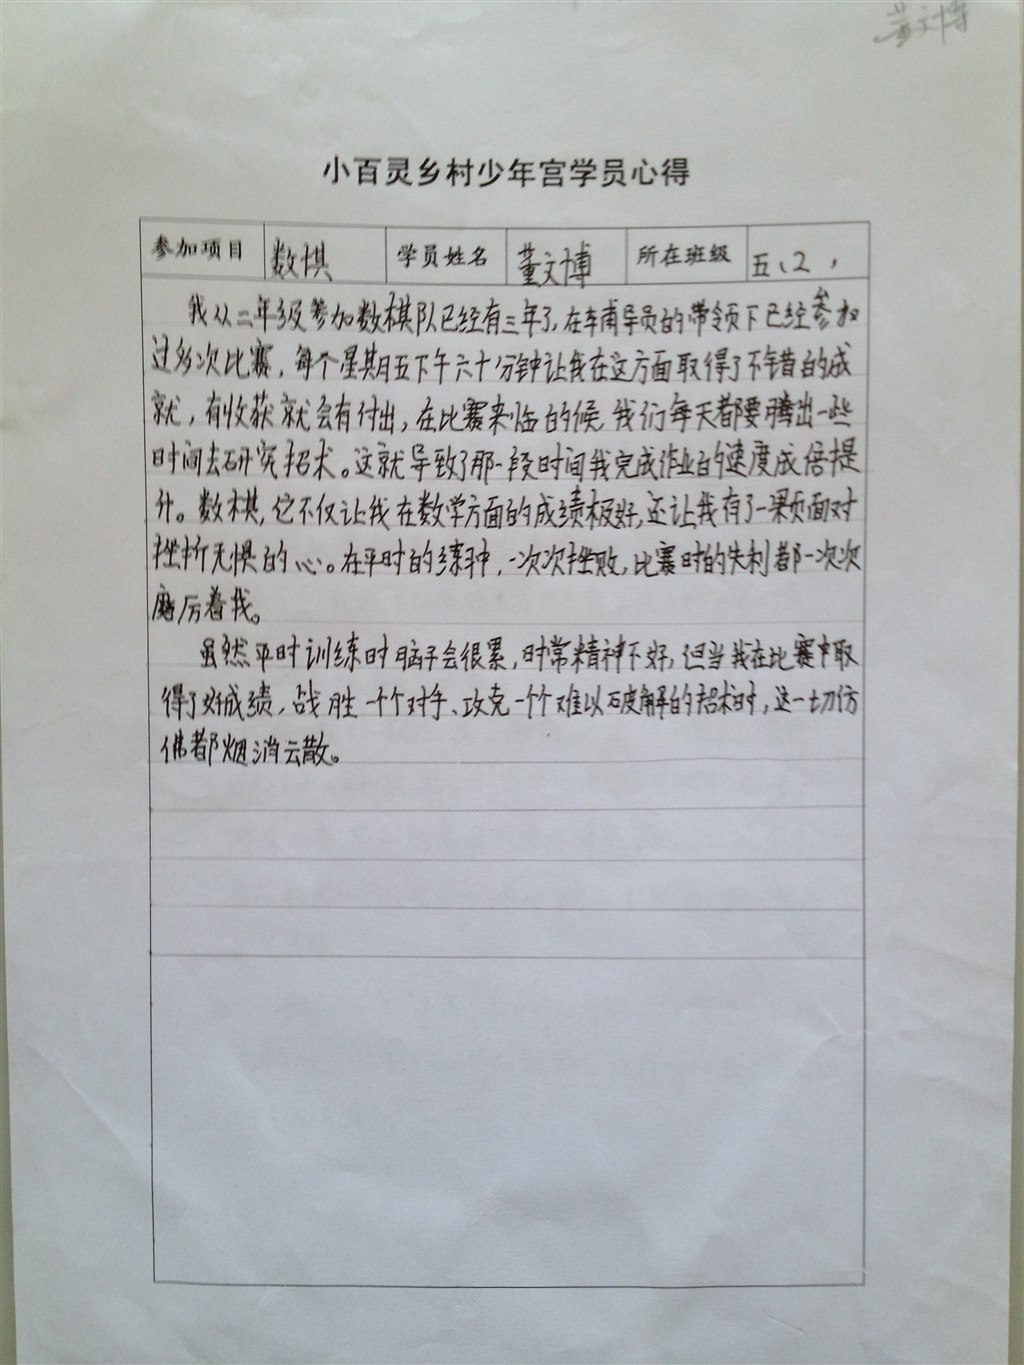 董文博
小百灵乡村少年宫学员心得
参加项目 数棋 学员姓名 董文博 所在班级 五、2，
我从二年级参加数棋队已经有三年了,在李甫导员的带领下已经参加
过多次比赛，每个星期五下午六十分钟让我在这方面取得了不错的成
就，有收获就会有付出，在比赛来临的候,我们每天都要腾出一些
时间去研究招术。这就导致了那一段时间我完成作业的速度成倍提
升。数棋,它不仅让我在数学方面的成绩极好,还让我有了一颗面对
挫折无惧的心。在平时的练习中，一次次挫败,比赛时的失利都一次次
磨厉着我。
虽然平时训练时脑子会很累,时常精神不好,但当我在比赛中取
得了好成绩，战胜一个个对手、攻克一个个难以破解的招术时，这一切仿
佛都烟消云散。